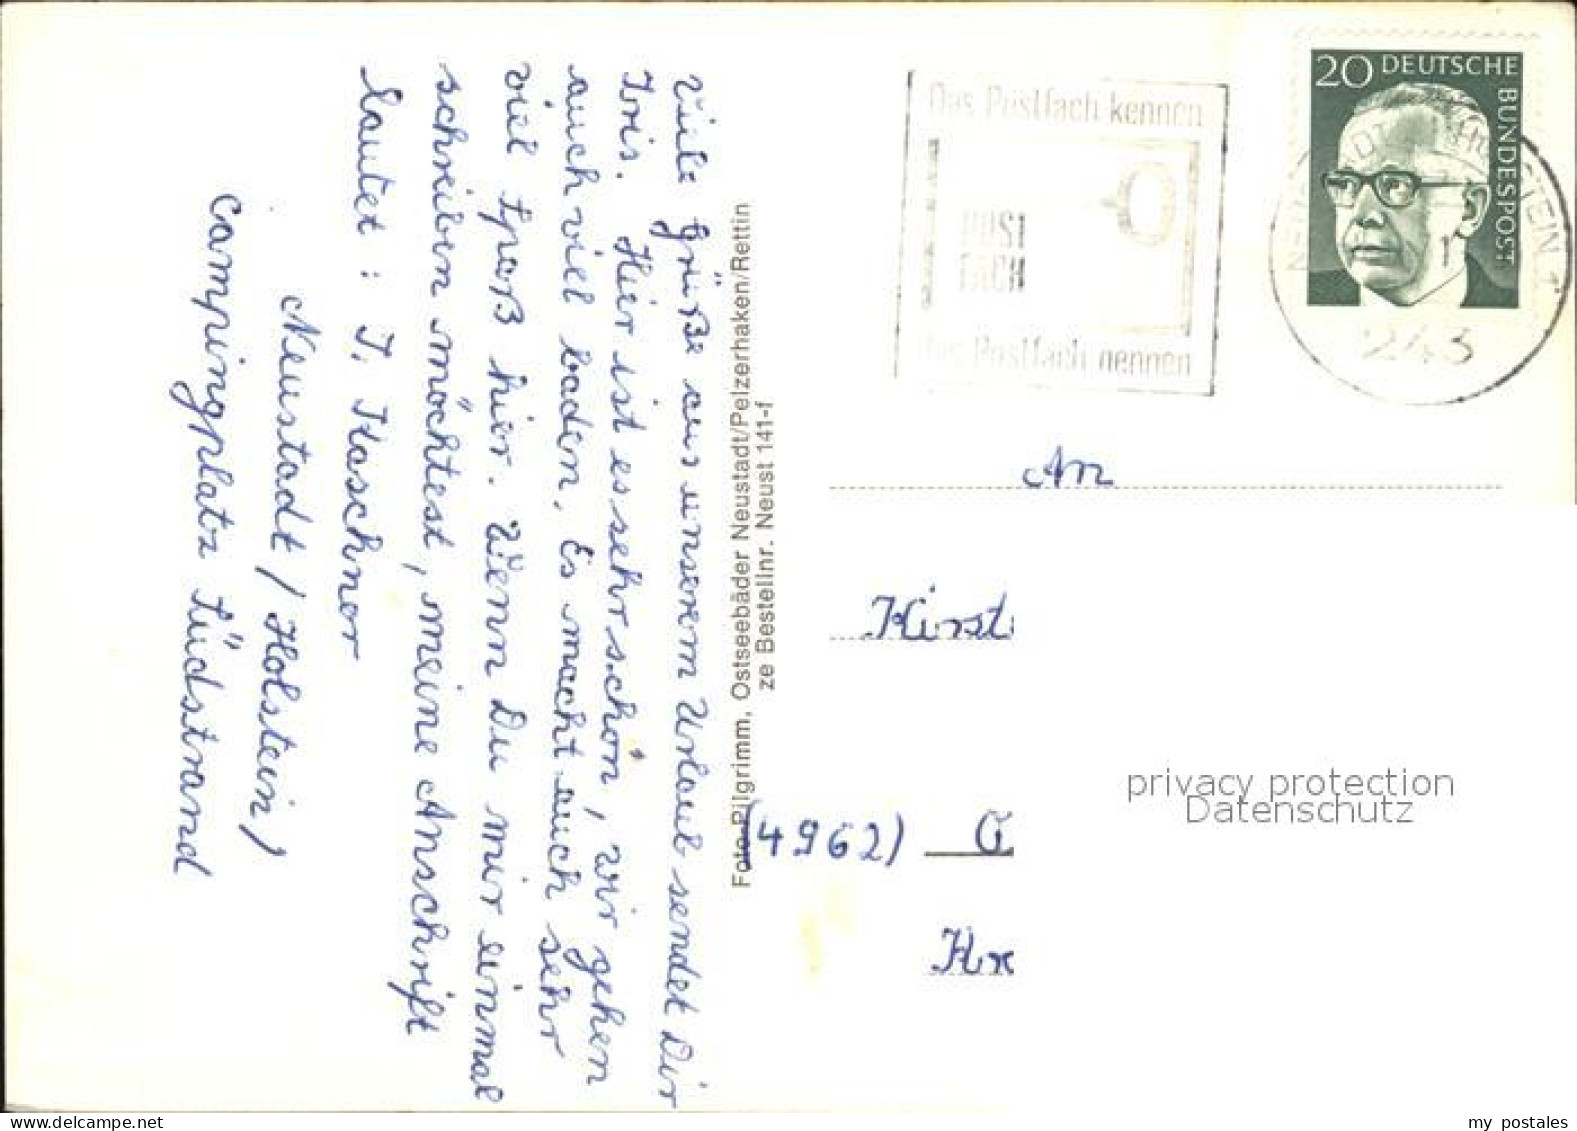 Viele Grüße aus unserem Urlaub sendet Dir
Iris. Hier ist es sehr schön, wir gehen
auch viel baden. Es macht auch sehr
viel Spaß hier. Wenn Du mir einmal
schreiben möchtest, meine Anschrift
lautet: I. Kaschner
Neustadt / Holstein /
Campingplatz Südstrand
Foto-Pilgrimm, Ostseebäder Neustadt/Pelzerhaken/Rettin
ze Bestellnr. Neust 141-f
Das Postfach kennen
POST
FACH
das Postfach nennen
20 DEUTSCHE
BUNDESPOST
243
An
Kirst
(4962)
Kr
privacy protection
Datenschutz
www.delcampe.net
my postales